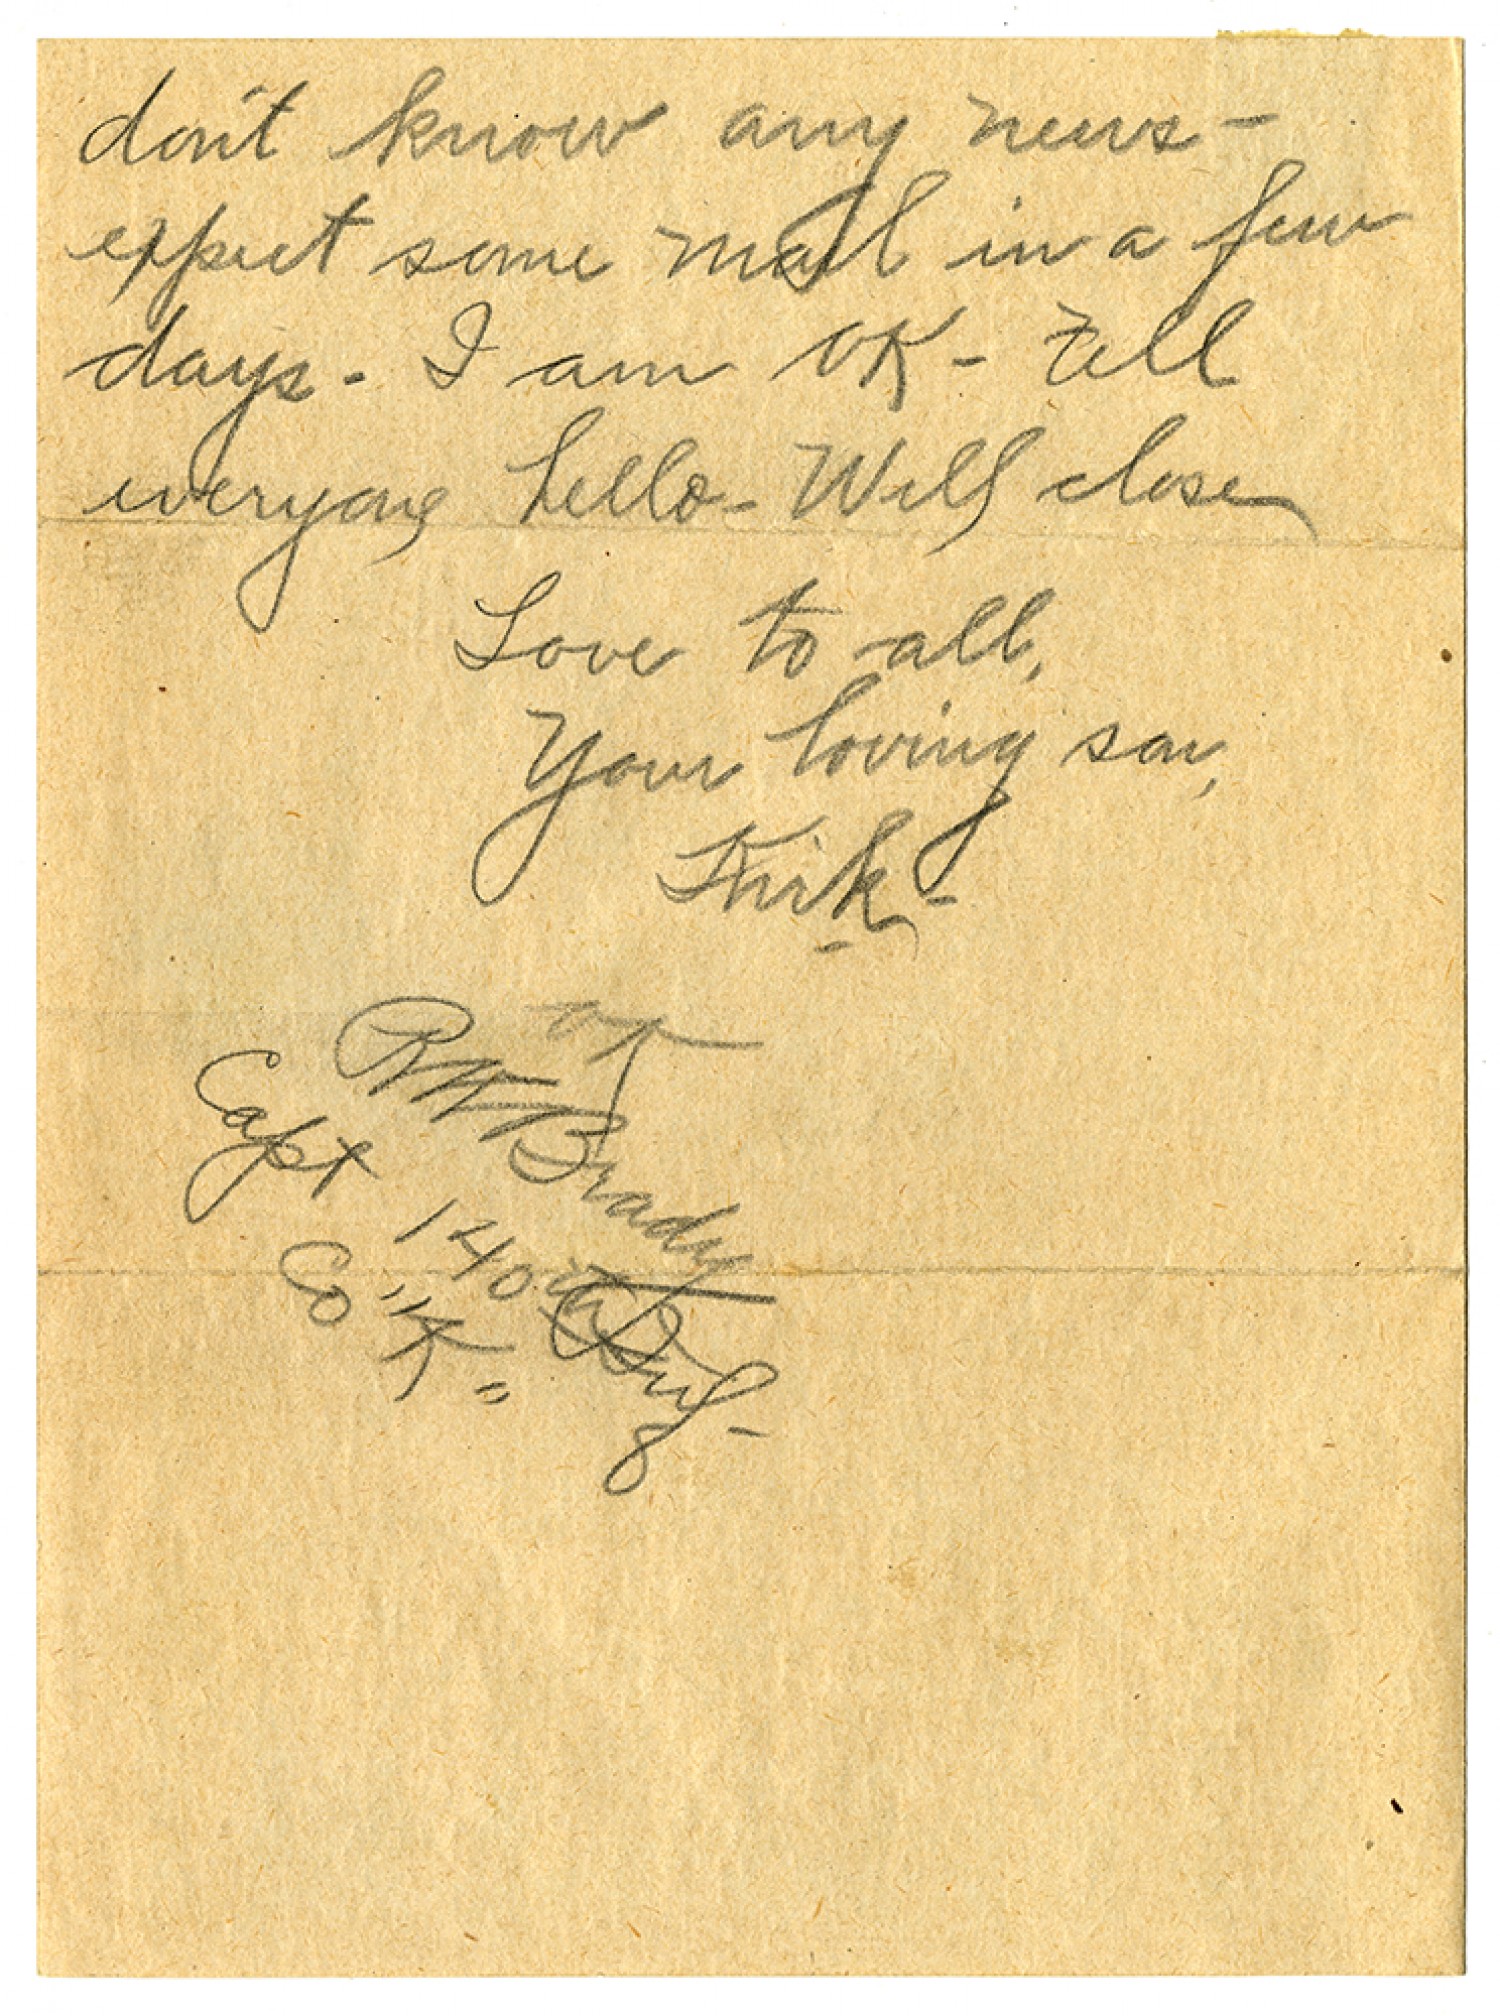 don't know any news -
expect some mail in a few
days - I am OK - Tell
everyone hello - Will close
Love to all,
Your loving son,
Kirk -
OK
RW Brady
Capt 140th Inf -
Co "K"